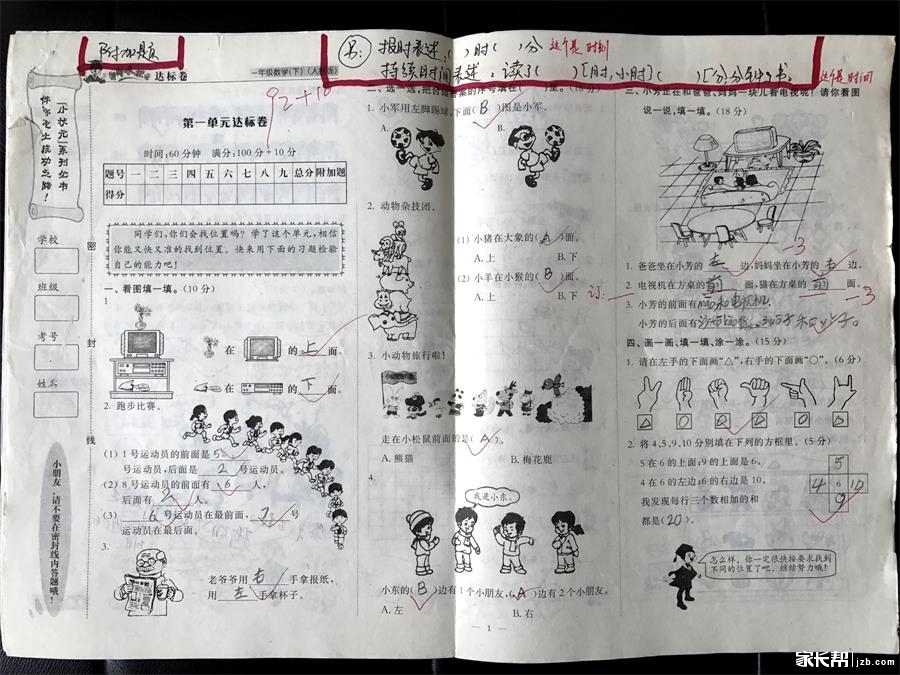 附加题
书: 报时表述:( )时( )分 这个是时刻
持续时间表述:读了( )[时,小时]( )[分,分钟]书。 这个是时间
达标卷
一年级数学(下)(人教版)
92+10
《小状元》系列丛书
伴你走上成功之路!
学校
班级
考号
姓名
密
封
线
小朋友,请不要在密封线内答题哦!
第一单元达标卷
时间:60分钟 满分:100分+10分
题号 一 二 三 四 五 六 七 八 九 总分 附加题
得分
同学们,你们会找位置吗?学了这个单元,相信
你能又快又准的找到位置。快来用下面的习题检验
自己的能力吧!
一、看图填一填。(10分)
1.
在 的 上 面。
在 的 下 面。
2. 跑步比赛。
(1) 1号运动员的前面是 5
号运动员,后面是 2 号运动员。
(2) 8号运动员的前面有 6 人,
后面有 2 人。
(3) 6 号运动员在最前面, 7 号
运动员在最后面。
3.
老爷爷用 右 手拿报纸,
用 左 手拿杯子。
二、选一选,把合适答案的序号填在( )里。(16分)
1. 小军用左脚踢球,下面(B)图是小军。
A. B.
2. 动物杂技团。
(1) 小猪在大象的(A)面。
A. 上 B. 下
(2) 小羊在小猴的(B)面。
A. 上 B. 下
3. 小动物旅行啦!
走在小松鼠前面的是(A)。
A. 熊猫 B. 梅花鹿
4.
我是小东。
小东的(B)边有1个小朋友,(A)边有2个小朋友。
A. 左 B. 右
— 1 —
三、小芳正在和爸爸、妈妈一块儿看电视呢!请你看图
说一说,填一填。(18分)
-3
1. 爸爸坐在小芳的 左 边,妈妈坐在小芳的 右 边。
2. 电视机在方桌的 前 面,猫在方桌的 前 面。
-3
3. 小芳的前面有 和电视机
小芳的后面有
四、画一画、填一填、涂一涂。(15分)
1. 请在左手的下面画“△”,右手的下面画“○”。(6分)
2. 将4,5,9,10分别填在下列的方框里。(5分)
5在6的上面;9的上面是6。
4在6的左边;6的右边是10。
我发现每行三个数相加的和
都是(20)。
5
4 6 10
9
怎么样,你一定很快按要求找到
不同的位置了吧,继续努力哦!
家长帮 jzb.com